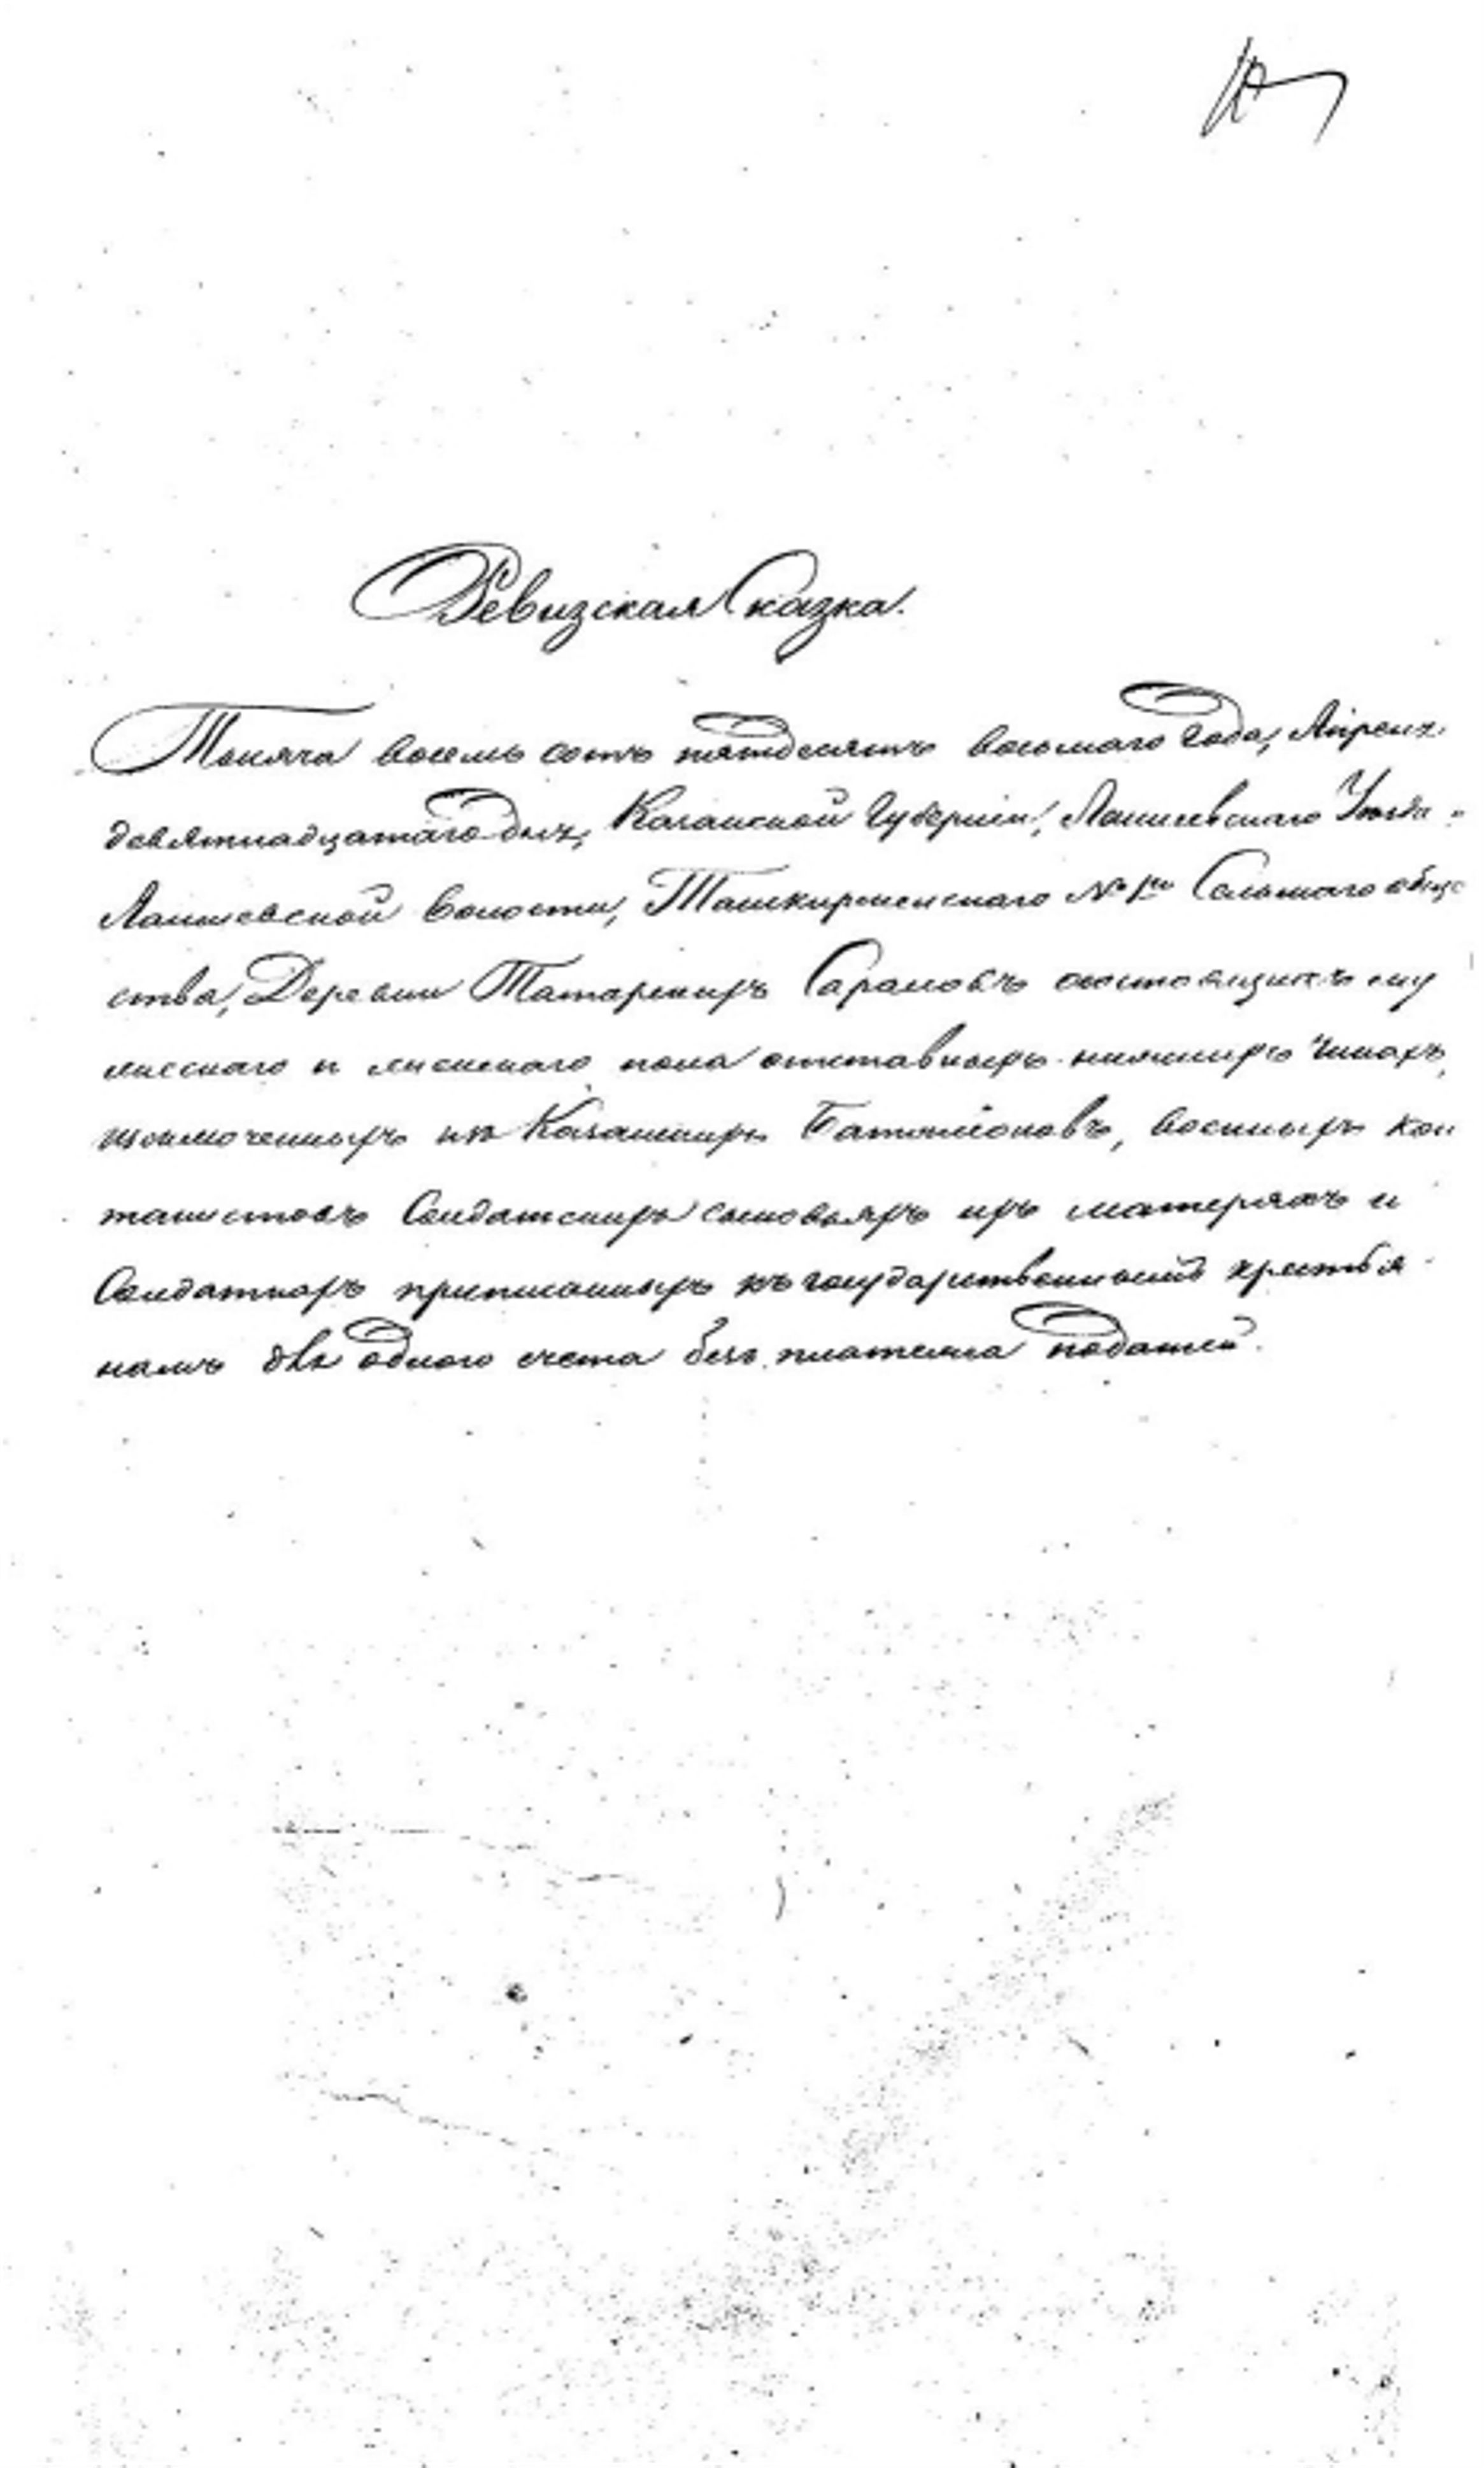 Ревизская Сказка.
Тысяча восемь сотъ пятдесятъ восьмаго года, Апреля
девятнадцатаго дня, Казанской Губерніи, Лаишевскаго Уѣзда
Лаишевской волости, Ташкирменскаго № 1го Сельскаго обще
ства, Деревни Татарскихъ Сараловъ состоящихъ му
жескаго и женскаго пола отставныхъ нижнихъ чинахъ,
исключенныхъ изъ Казанскихъ Баталіоновъ, военныхъ кан
тонистовъ Солдатскихъ сыновьяхъ ихъ матеряхъ и
Солдаткахъ приписанныхъ къ государственнымъ крестья
намъ для одного счета безъ платежа податей.